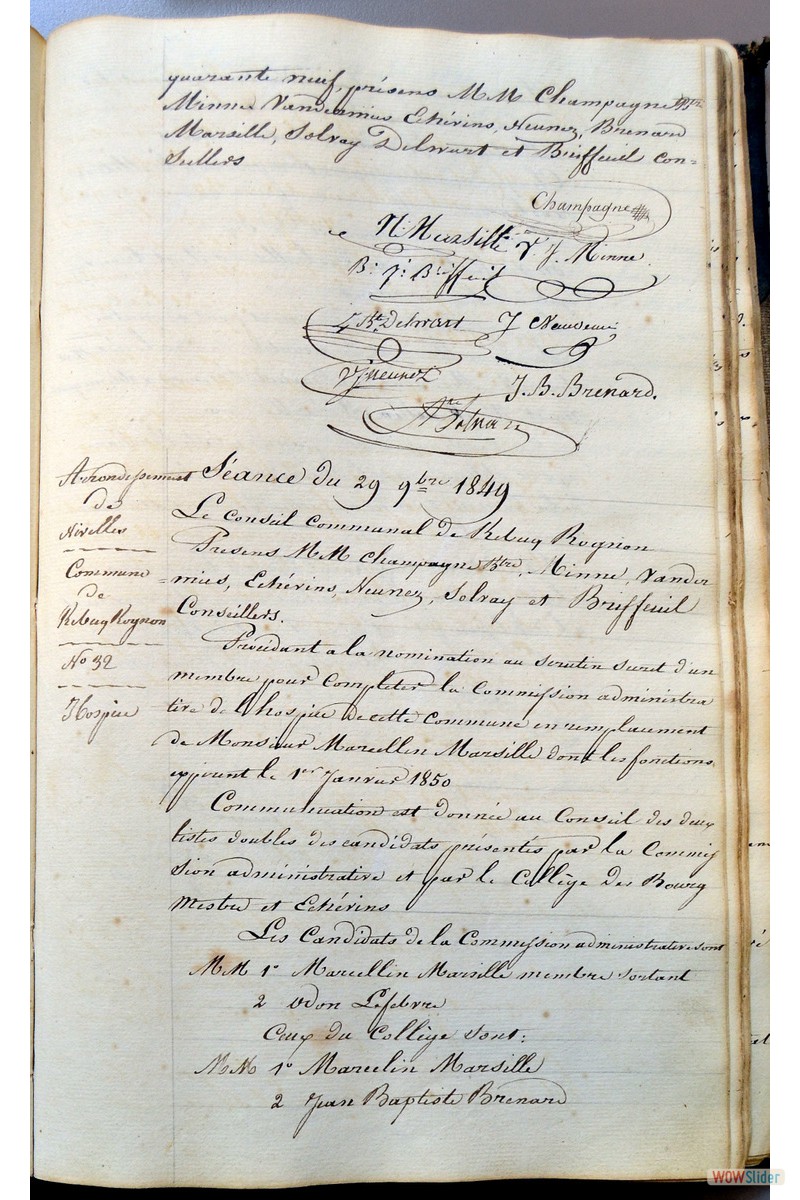 quarante neuf, présens MM Champagne Btre
Minne Vandernius Echévins, Neunez, Brenard
Marsille, Solvay Delwart et Briffeuil con=
seillers
Champagne
N Marsille
J. Minne
B. J. Briffeuil
J. Bte Delwart
J
VJ Neunez
J. B. Brenard.
Arrondissement
de
Nivelles
Commune
de
Rebecq Rognon
No 32
Hospice
Séance du 29 9bre 1849
Le Conseil Communal de Rebecq Rognon
Présens MM Champagne Btre, Minne, Vander
=nius, Echévins, Neunez, Solvay et Briffeuil
Conseillers.
Procédant a la nomination au scrutin secret d'un
membre pour completer la Commission administra
tive de l'hospice de cette commune en remplacement
de Monsieur Marcellin Marsille dont les fonctions
expirent le 1er Janvier 1850
Communication est donnée au Conseil des deux
listes doubles des candidats présentés par la Commis
sion administrative et par le Collège des Bourg
mestre et Echévins
Les Candidats de la Commission administrative sont
MM 1o Marcellin Marsille membre sortant
2 Odon Lefebvre
Ceux du Collège sont:
MM 1o Marcelin Marsille
2 Jean Baptiste Brenard
WOWSlider